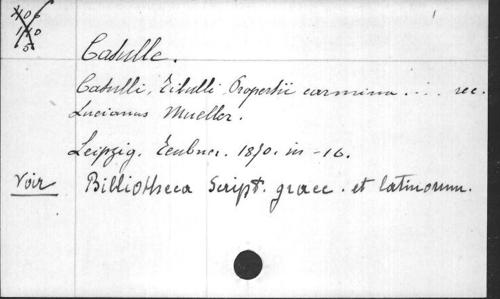 406
140
5
Catulle.
Catulli, Tibulli Propertii carmina .... rec.
Lucianus Mueller.
Leipzig. Teubner. 1870. in-16.
Voir Bibliotheca Script. graec. et latinorum.